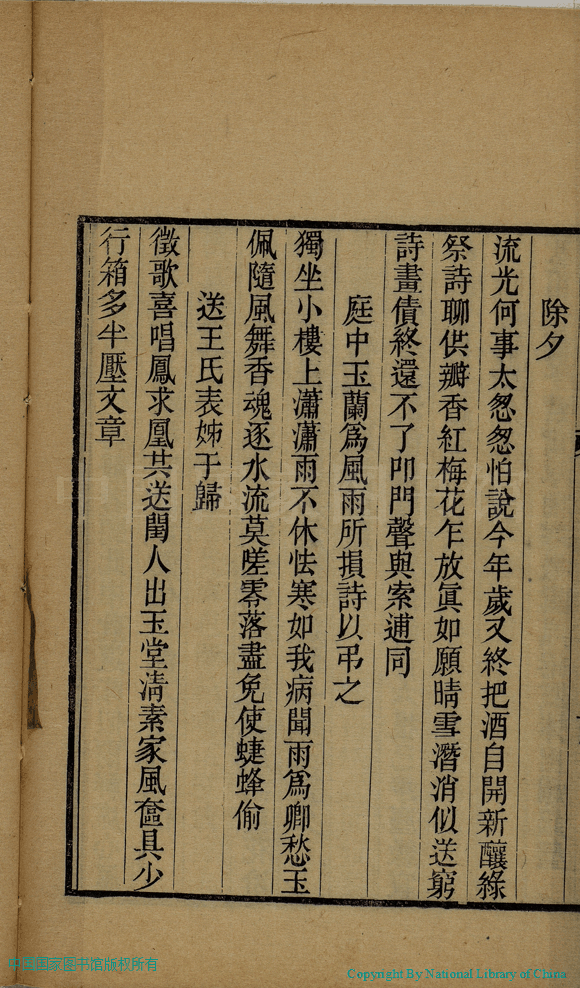 除夕
流光何事太怱怱怕說今年歲又終把酒自開新釀綠
祭詩聊供瓣香紅梅花乍放眞如願晴雪潛消似送窮
詩畫債終還不了叩門聲與索逋同
庭中玉蘭爲風雨所損詩以弔之
獨坐小樓上瀟瀟雨不休怯寒如我病聞雨爲卿愁玉
佩隨風舞香魂逐水流莫嗟零落盡免使蜨蜂偷
送王氏表姊于歸
徵歌喜唱鳳求凰共送閨人出玉堂淸素家風奩具少
行箱多半壓文章
中国国家图书馆版权所有
Copyright By National Library of China